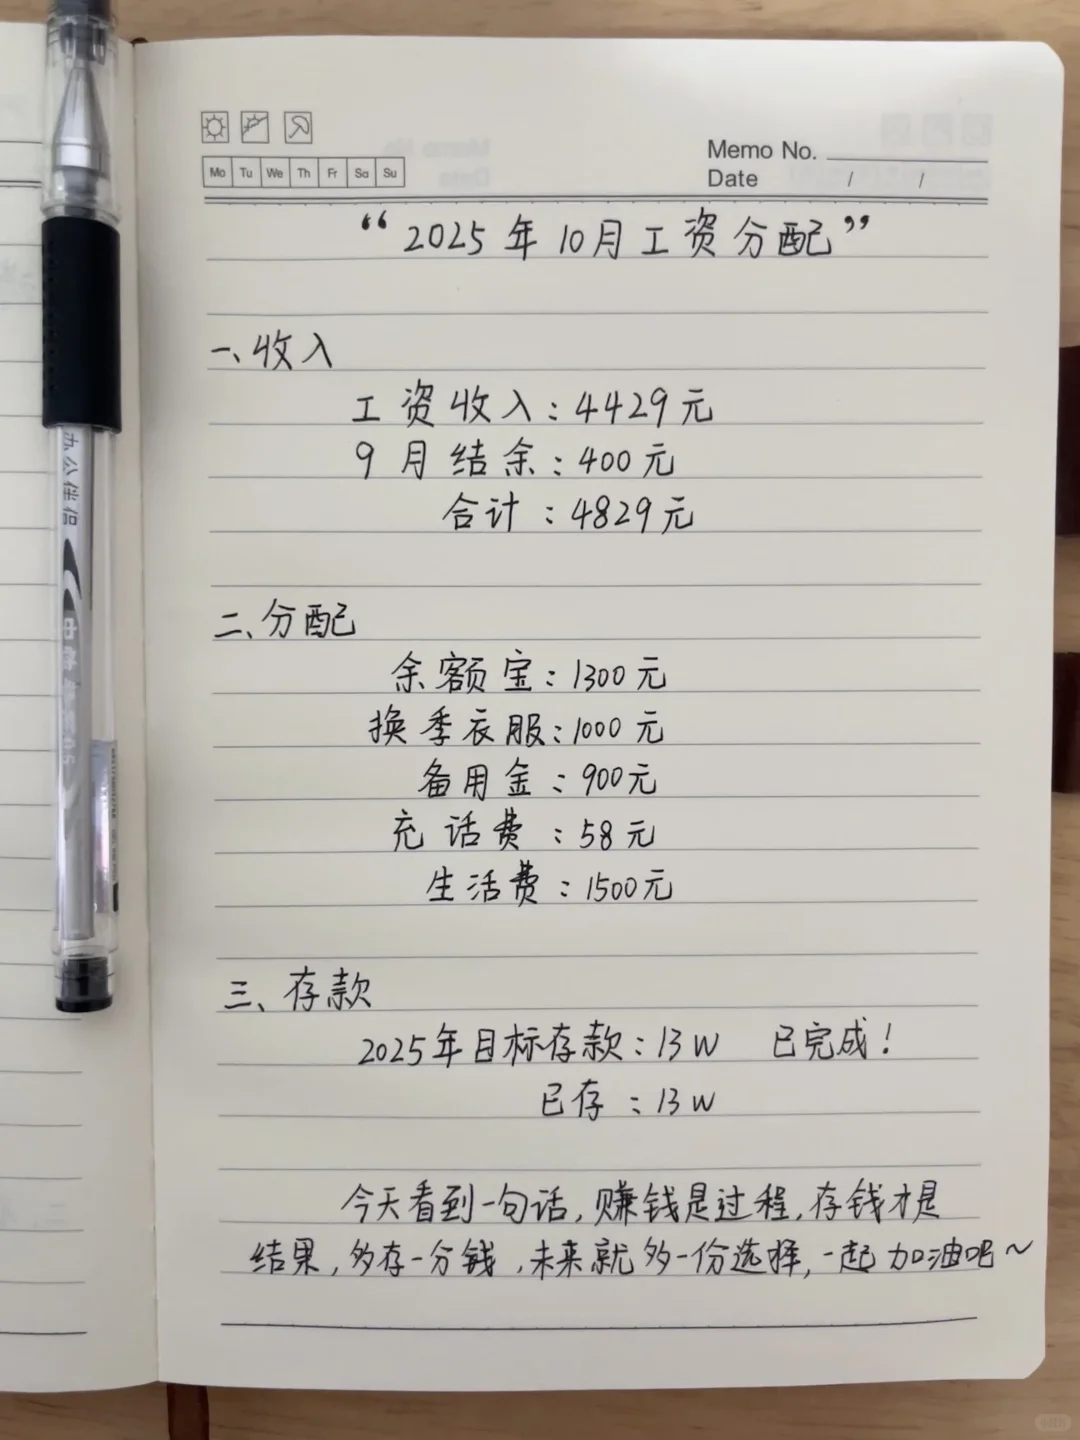 Mo Tu We Th Fr Sa Su
Memo No.
Date / /
“2025年10月工资分配”
一、收入
工资收入：4429元
9月结余：400元
合计：4829元
二、分配
余额宝：1300元
换季衣服：1000元
备用金：900元
充话费：58元
生活费：1500元
三、存款
2025年目标存款：13W 已完成！
已存：13W
今天看到一句话，赚钱是过程，存钱才是
结果，多存一分钱，未来就多一份选择，一起加油吧～
办公伴侣